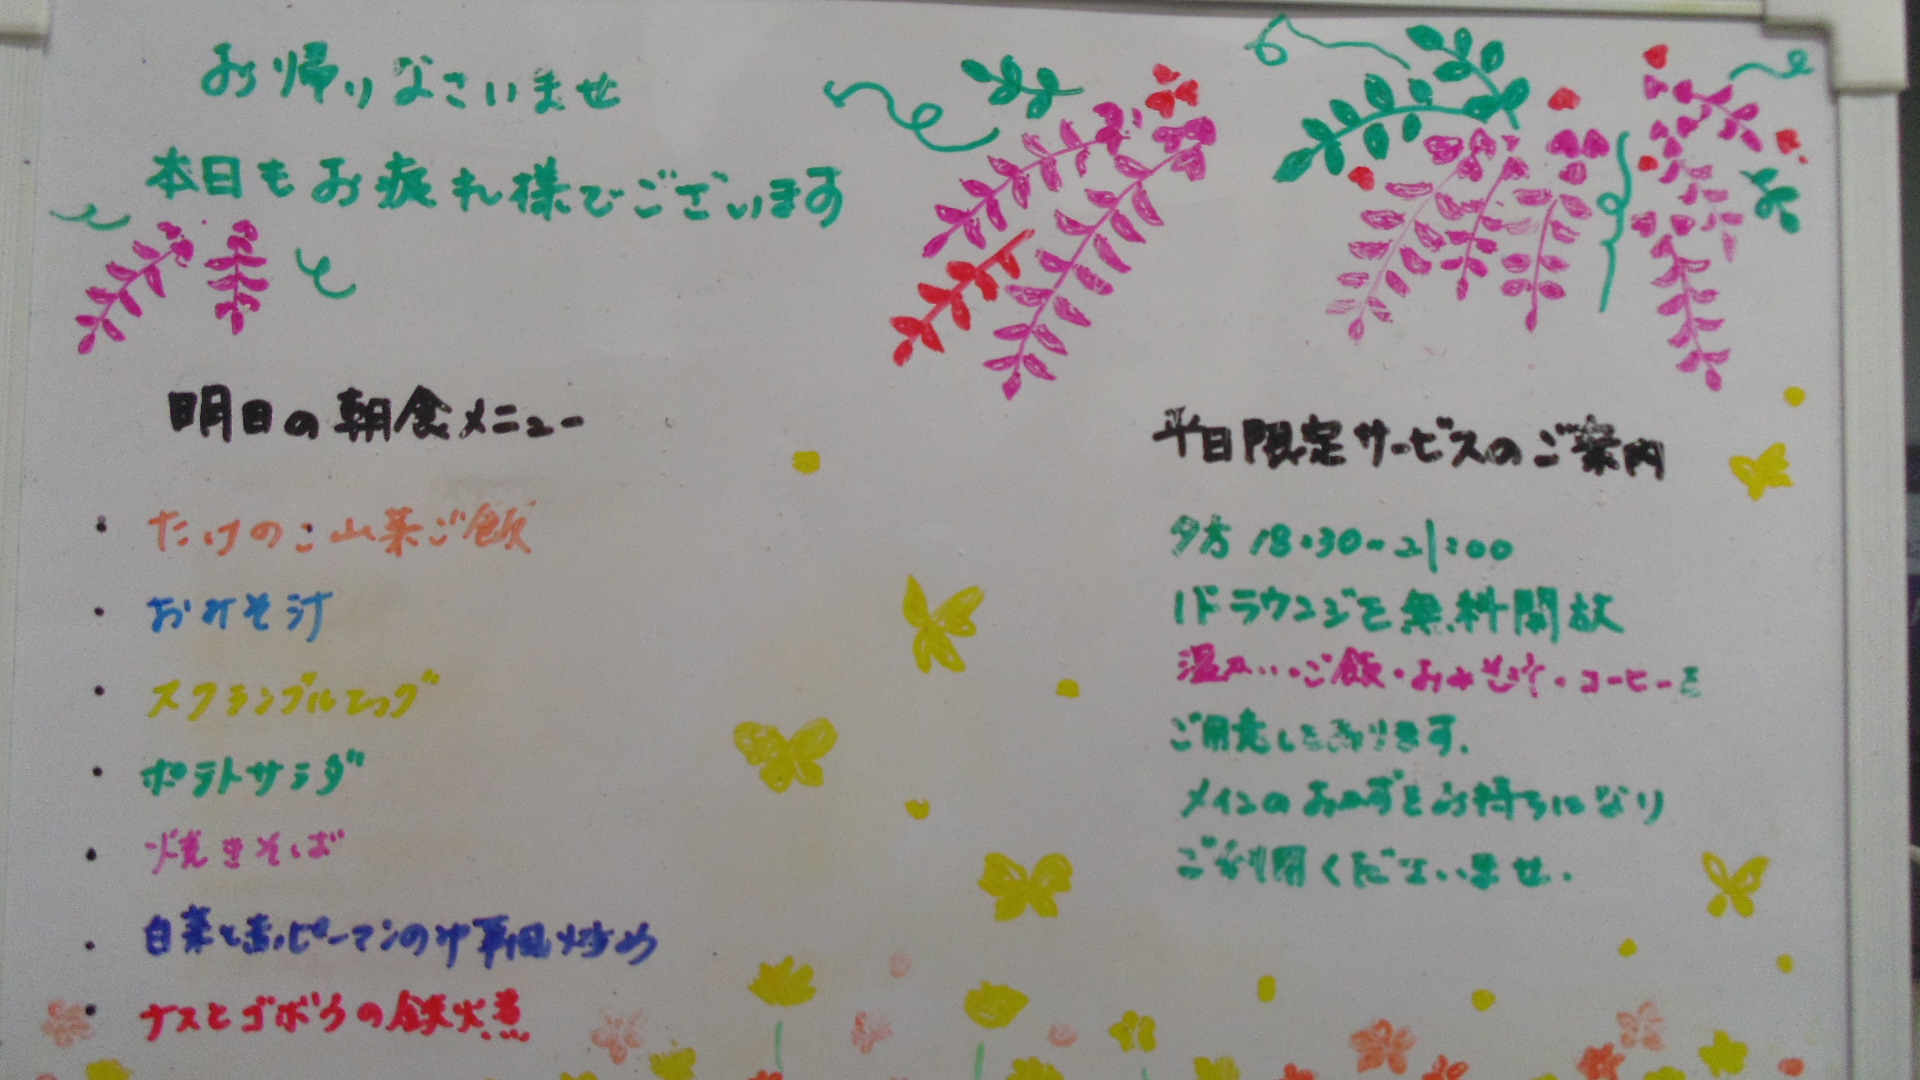 お帰りなさいませ
本日もお疲れ様でございます
明日の朝食メニュー
・たけのこ山菜ご飯
・おみそ汁
・スクランブルエッグ
・ポテトサラダ
・焼きそば
・白菜と赤ピーマンの中華風炒め
・ナスとゴボウの鉄火煮
平日限定サービスのご案内
夕方 18:30~21:00
1Fラウンジを無料開放
ご飯・おみそ汁・コーヒーを
ご用意しております。
メインのおかずをお持ちになり
ご利用くださいませ.